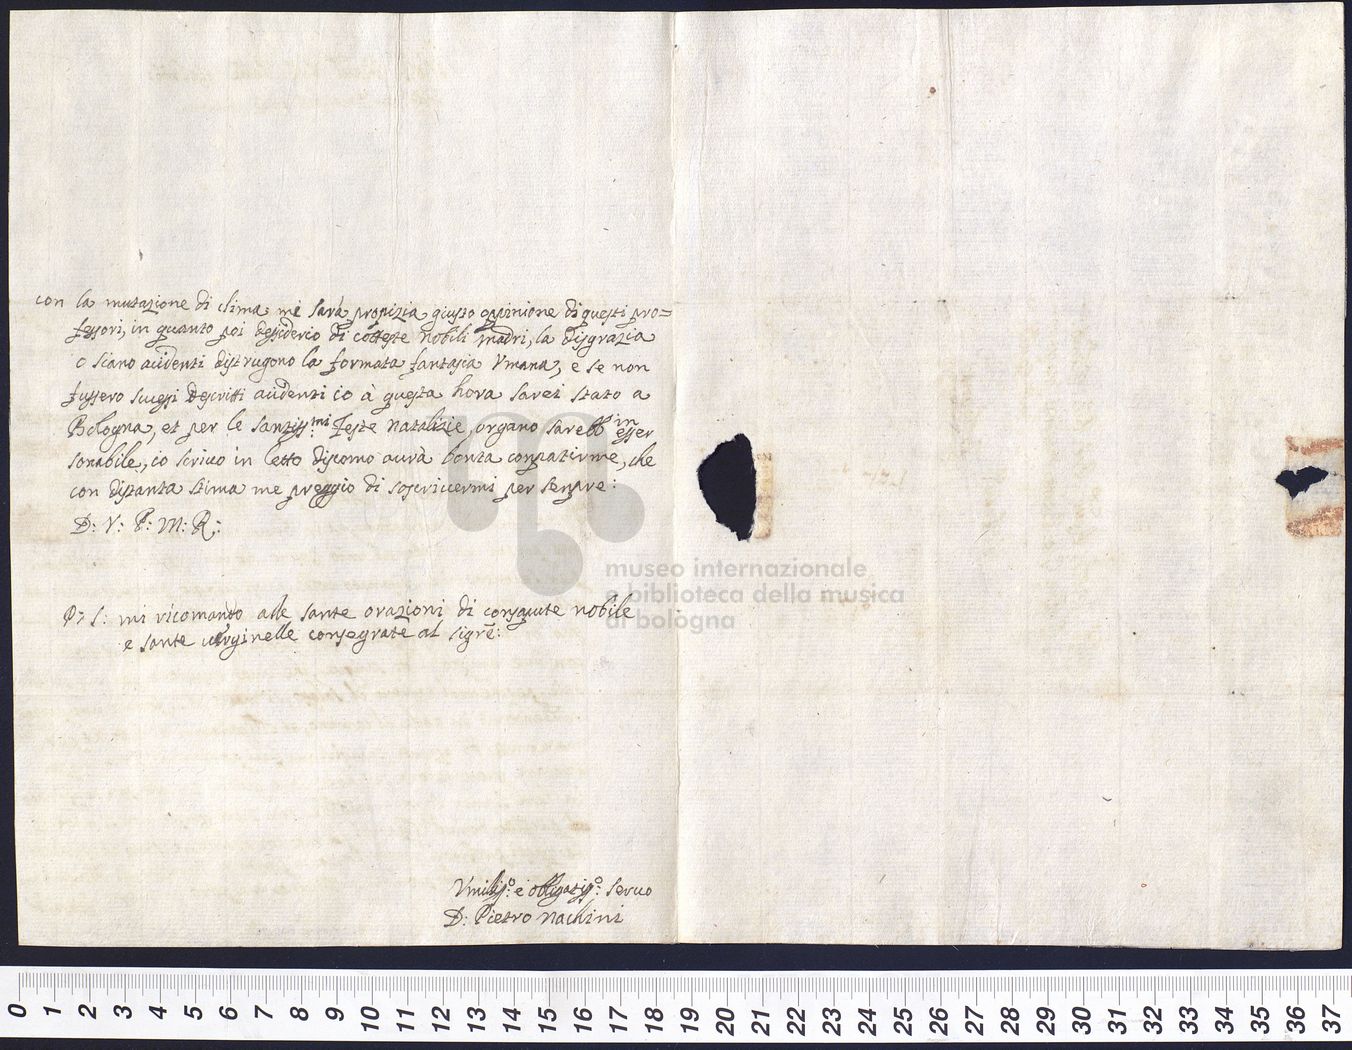 con la mutazione di clima mi sarà propizia giusto oppinione di questi pro=
fessori, in quanto poi desiderio di coteste nobili madri, la disgrazia
o siano acidenti distrugono la formata fantasia Vmana, e se non
fussero sucessi descritti acidenti io à questa hora sarei stato a
Bologna, et per le santiss:mi feste natalizie, organo sarebb in esser
sonabile, io scrivo in letto discomo avrà bonta compatirme, che
con distanta stima me preggio di soscrivermi per senpre:
D: V: P: M: R:
P: S: mi ricomando alle sante orazioni di nobile
e sante verginelle consegrate al sigre:
Vmiliss:o e obligatiss:o servo
D: Pietro Nachini
museo internazionale
e biblioteca della musica
di bologna
0 1 2 3 4 5 6 7 8 9 10 11 12 13 14 15 16 17 18 19 20 21 22 23 24 25 26 27 28 29 30 31 32 33 34 35 36 37